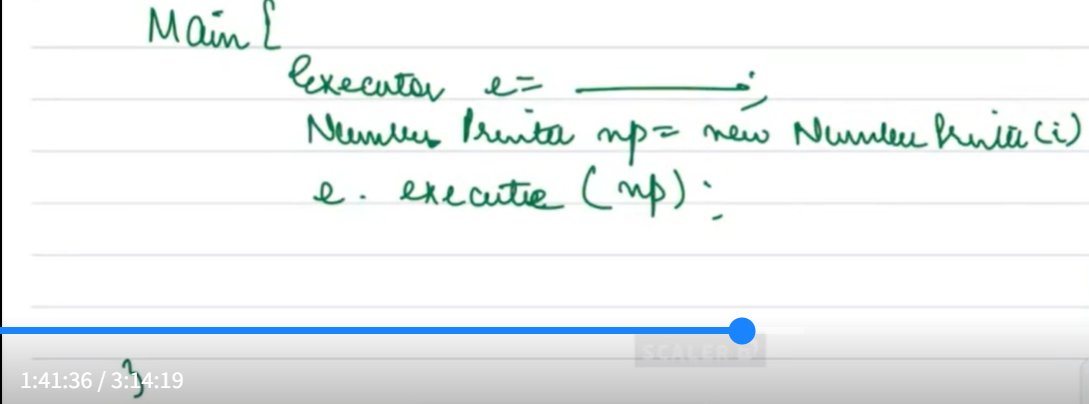 Main {
Executor e= ———;
Number Printer np= new Number Printer(i)
e. execute (np);
SCALER
1:41:36 / 3:14:19
}